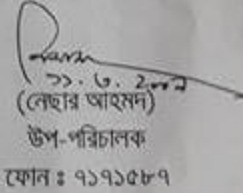 ১১.৩.২০০৭
(নেছার আহমদ)
উপ-পরিচালক
ফোন ঃ ৭১৭১৫৮৭